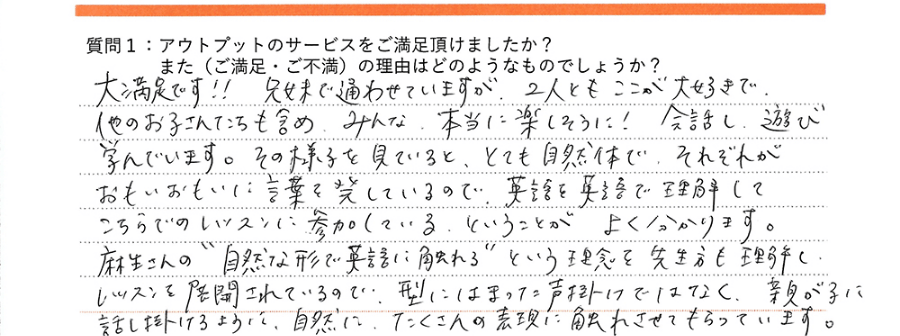 質問1:アウトプットのサービスをご満足頂けましたか?
また(ご満足・ご不満)の理由はどのようなものでしょうか?
大満足です!! 兄妹で通わせていますが、2人ともここが大好きで、
他のお子さんたちも含め、みんな、本当に楽しそうに! 会話し、遊び
学んでいます。その様子を見ていると、とても自然体で、それぞれが
おもいおもいに言葉を発しているので、英語を英語で理解して
こちらでのレッスンに参加している、ということが よく分かります。
麻生さんの"自然な形で英語に触れる"という理念を先生方も理解し、
レッスンを展開されているので、型にはまった声掛けではなく、親が子に
話し掛けるように、自然に、たくさんの表現に触れさせてもらっています。